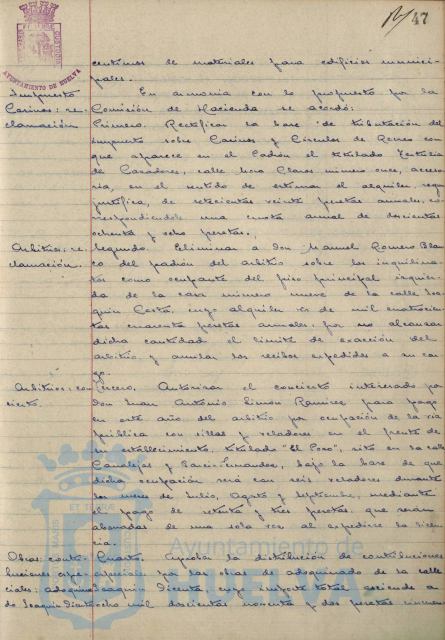 47
AYUNTAMIENTO DE HUELVA
centimos de materiales para edificios munici-
pales.
Impuesto
Casinos: re-
clamación
En armonia con lo propuesto por la
Comisión de Hacienda se acordó:
Primero. Rectificar la base de tributación del
impuesto sobre Casinos y Circulos de Recreo con
que aparece en el Padrón el titulado Tertulia
de Cazadores, calle Mora Claros número once, acceso-
ria, en el sentido de estimar el alquiler, seg.
justifica, de setecientas veinte pesetas anuales, co-
rrespondiendole una cuota anual de doscientas
ochenta y ocho pesetas.
Arbitrios: re-
clamación.
Segundo. Eliminar a Don Manuel Romero Blan-
co del padrón del arbitrio sobre los inquilina-
tos como ocupante del piso principal izquier-
da de la casa número nueve de la calle Joa-
quin Costa, cuyo alquiler es de mil cuatrocien-
tas cuarenta pesetas anuales, por no alcanzar
dicha cantidad el limite de exacción del
arbitrio, y anular los recibos expedidos a su car-
go.
Arbitrios: con-
cierto.
Tercero. Autorizar el concierto interesado po
Don Juan Antonio Limón Ramirez para pago
en este año del arbitrio por ocupación de la via
pública con sillas y veladores en el frente de
su establecimiento, titulado "El Pozo", sito en la calle
Canalejas y Garci-Fernandez, bajo la base de que
dicha ocupación será con seis veladores durante
los meses de Julio, Agosto y Septiembre, mediante
el pago de setenta y tres pesetas que serán
abonadas de una sola vez al expedirse la licen-
cia.
Obras: contri-
buciones espe-
ciales: adoquinado
de Joaquin Dicenta
Cuarto. Aprobar la distribución de contribuciones
especiales por las obras de adoquinado de la calle
Joaquin Dicenta, cuyo importe total asciende a
ocho mil doscientas noventa y dos pesetas cincuen
Ayuntamiento de
HUELVA